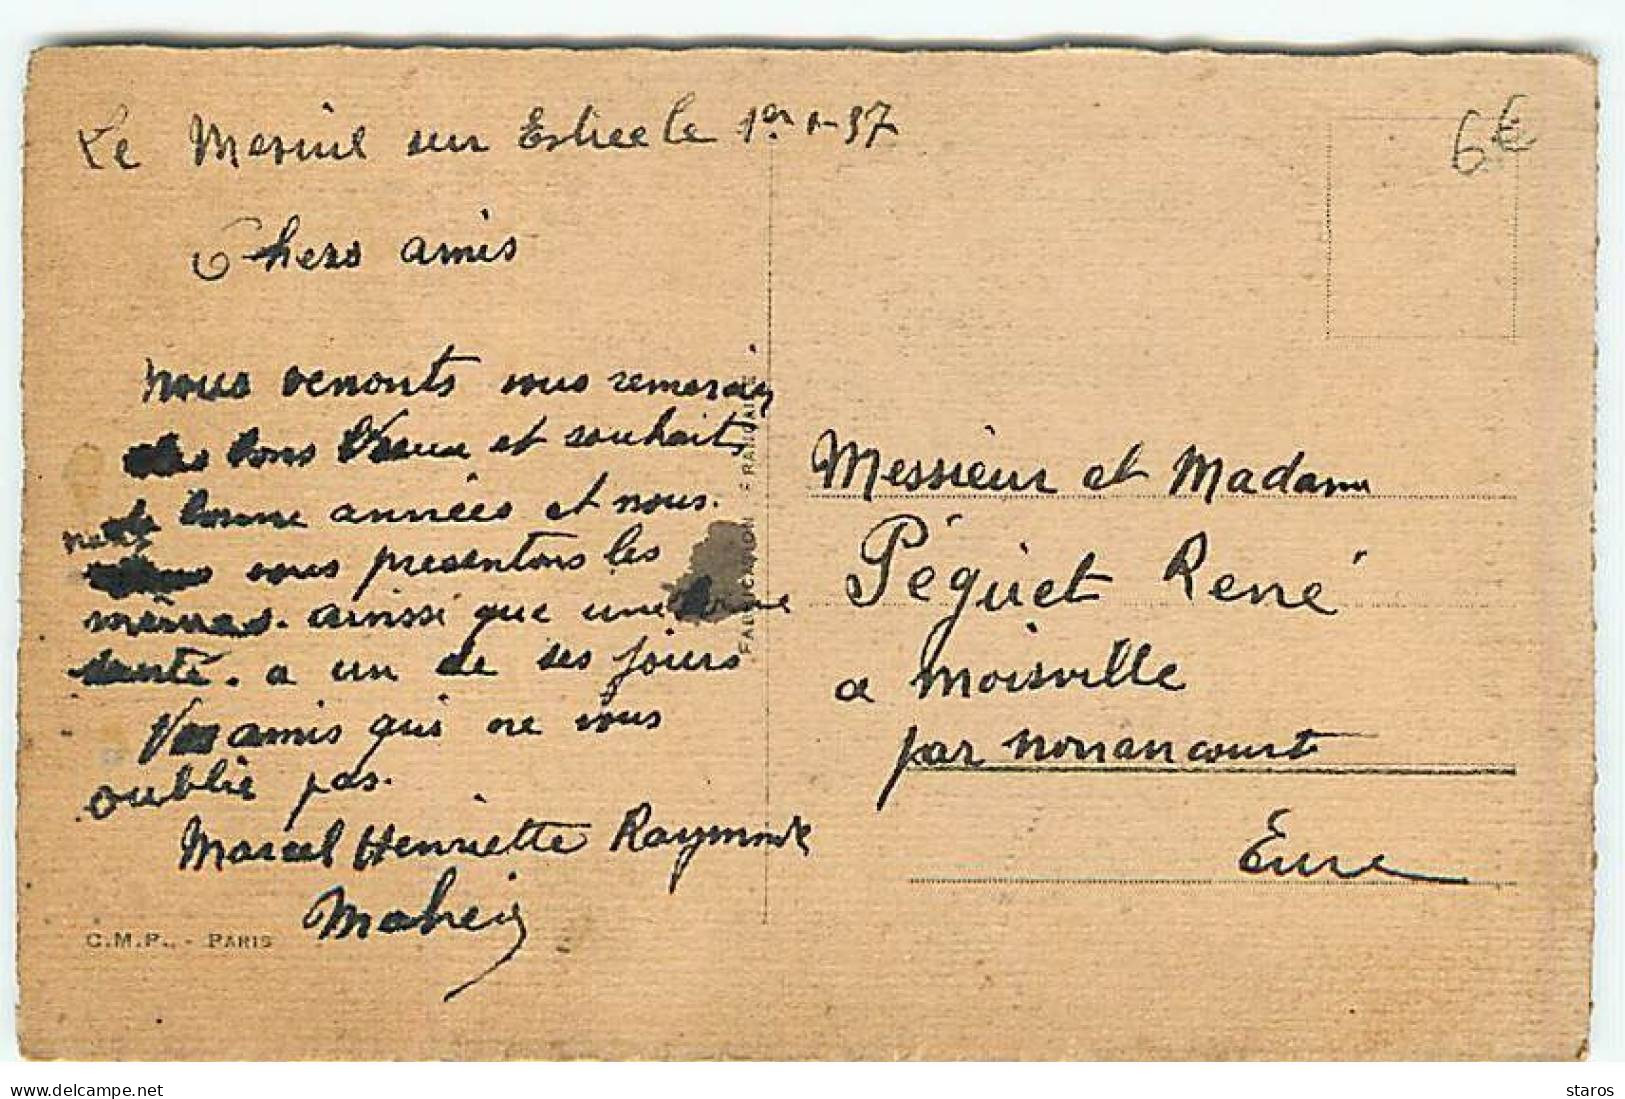 Le Mesnil sur Estrée le 1er 1-37
6€
Chers amis
nous venonts vous remercier
des bons Veaux et souhaits
de bonne années et nous.
nous vous presentons les
mêmes. ainssi que une bonne
santé. a un de ses jours
Vos amis qui ne vous
oublie pas.
Marcel Henriette Raymonde
C.M.P. - PARIS
FABRICATION FRANÇAISE
Messieur et Madame
Péguet René
a Moisville
par nonancourt
Eure
www.delcampe.net
staros